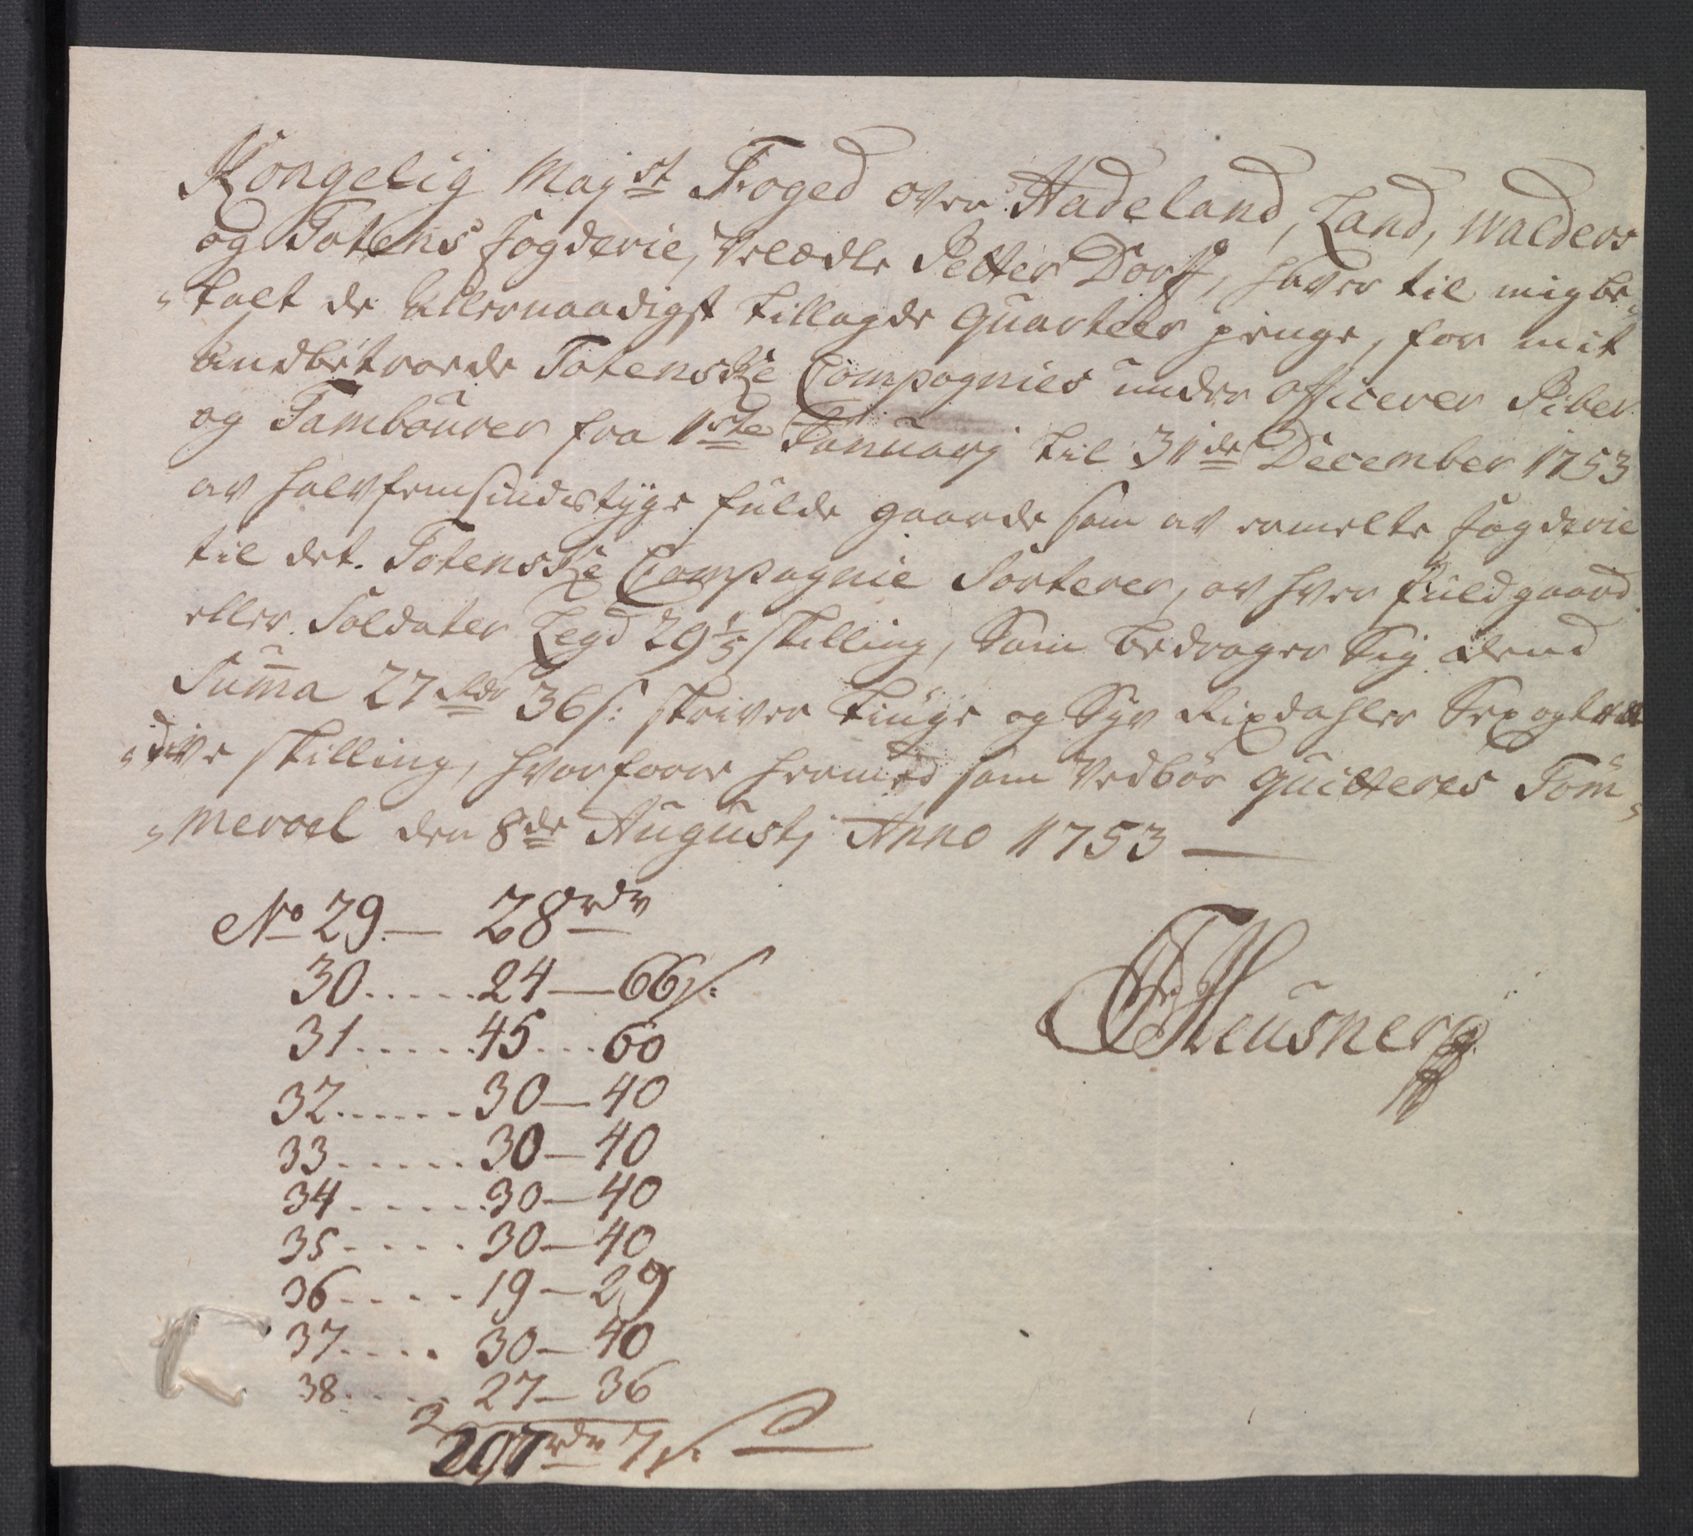 Kongelig Mayst Foged over Hadeland, Land, Walders
og Totens fogderie, Velædle Petter Dorff, haver til mig be„
„talt de Allernaadigst tillagde Quarteer penge, for mit
andbetroede Totenske Compagnies under officerer Piber
og Tambourer fra 1ste Januarj til 31de December 1753
av halvfemsindstyge fulde gaarde som av ermelte fogderie
til det Totenske Compagnie Sorterer, av hver fuldgaard
eller Soldater Legd 29 1/5 skilling, Som bedrager Sig dend
Summa 27 Rdr 36 s: skriver tiuge og Syv Rixdahler Sex og tret
„dive skilling, hvorforre hermed som Vedbør quitteres Töm„
„meroel den 8de Augustj Anno 1753 —
No 29 — 28 rdr
30 ..... 24 — 66 s:
31 ..... 45 ... 60
32 ...... 30 — 40
33 ..... 30 — 40
34 ..... 30 — 40
35 ..... 30 — 40
36 ..... 19 — 29
37 .... 30 — 40
38 ..... 27 — 36
297 rdr 7 s.
Heusner